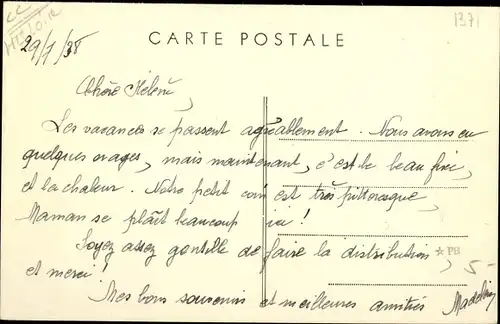 CC
Hte LOIRE
1371
29/7/38
CARTE POSTALE
Chère Hélène,
Les vacances se passent agréablement. Nous avons eu
quelques orages, mais maintenant, c'est le beau fixe,
et la chaleur. Notre petit coin est très pittoresque,
Maman se plaît beaucoup ici!
Soyez assez gentille de faire la distribution,
et merci!
★ PB
5-
Mes bons souvenirs et meilleures amitiés Madeleine